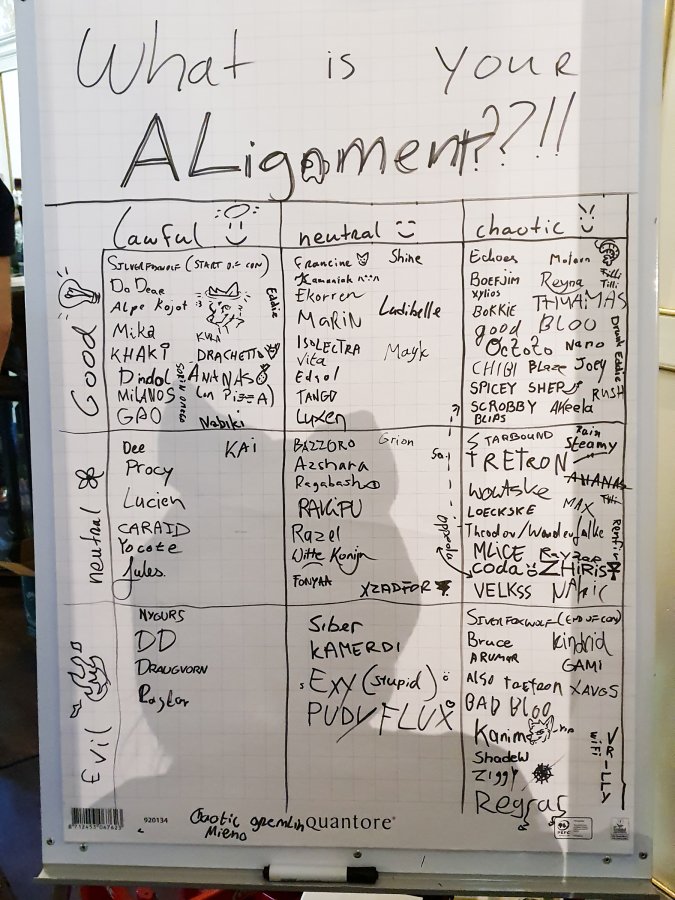 What is your
ALignment??!!
Lawful
neutral
chaotic
Good
SILVERFOXWOLF (START OF CON)
Da Dear
Alpe Kojot
Eddie
Mika
KURA
KHAKI
DRACHETTO
Dindol
ANANAS
MILANOS
(on PizzA)
GAO
Nabiki
Francine
Shine
Kamaniak
Ekorren
Ladibelle
MaRiN
ISOLECTRA
Vita
Mayk
Edsol
TANGO
Luxen
Echoes
BOEFJIM
Reyna
Tilli
xylios
THYAIMAS
BOKKIE
good
BLOO
OCTOTO
Nano
Drunk Eddie
CHIBI
Blaze
Joey
SPICEY SHEP
RUSH
SCROBBY
AKeela
BLIPS
neutral
Dee
KAi
Procy
Lucien
CARAID
Yocote
Jules
BAZZORO
Grion
Azshara
Ragabash
RAVIPU
Razel
Witte Konijn
FONYAA
XZADFOR
STARBOUND
Rain
Steamy
TRETRON
ANANAS
WOWTSKE
LOECKSKE
MAX
Theodor/Wonderfalke
MLiCE
Rayzor
coda
ZHIRIS
VELKSS
Evil
NYGURS
DD
DRAUGVORN
Siber
KAMERDI
Exy (stupid)
PUDY FLUX
SILVERFOXWOLF (END OF CON)
Bruce
Kindrid
ARUMAR
GAMI
ALSO TRETRON
XAVOS
BAD Bloo
Kanima
Shadow
WiFi
VR-ILLY
ZiGGY
Regrar
8712453 067623
920134
Chaotic gremlin
Mieno
Quantore®